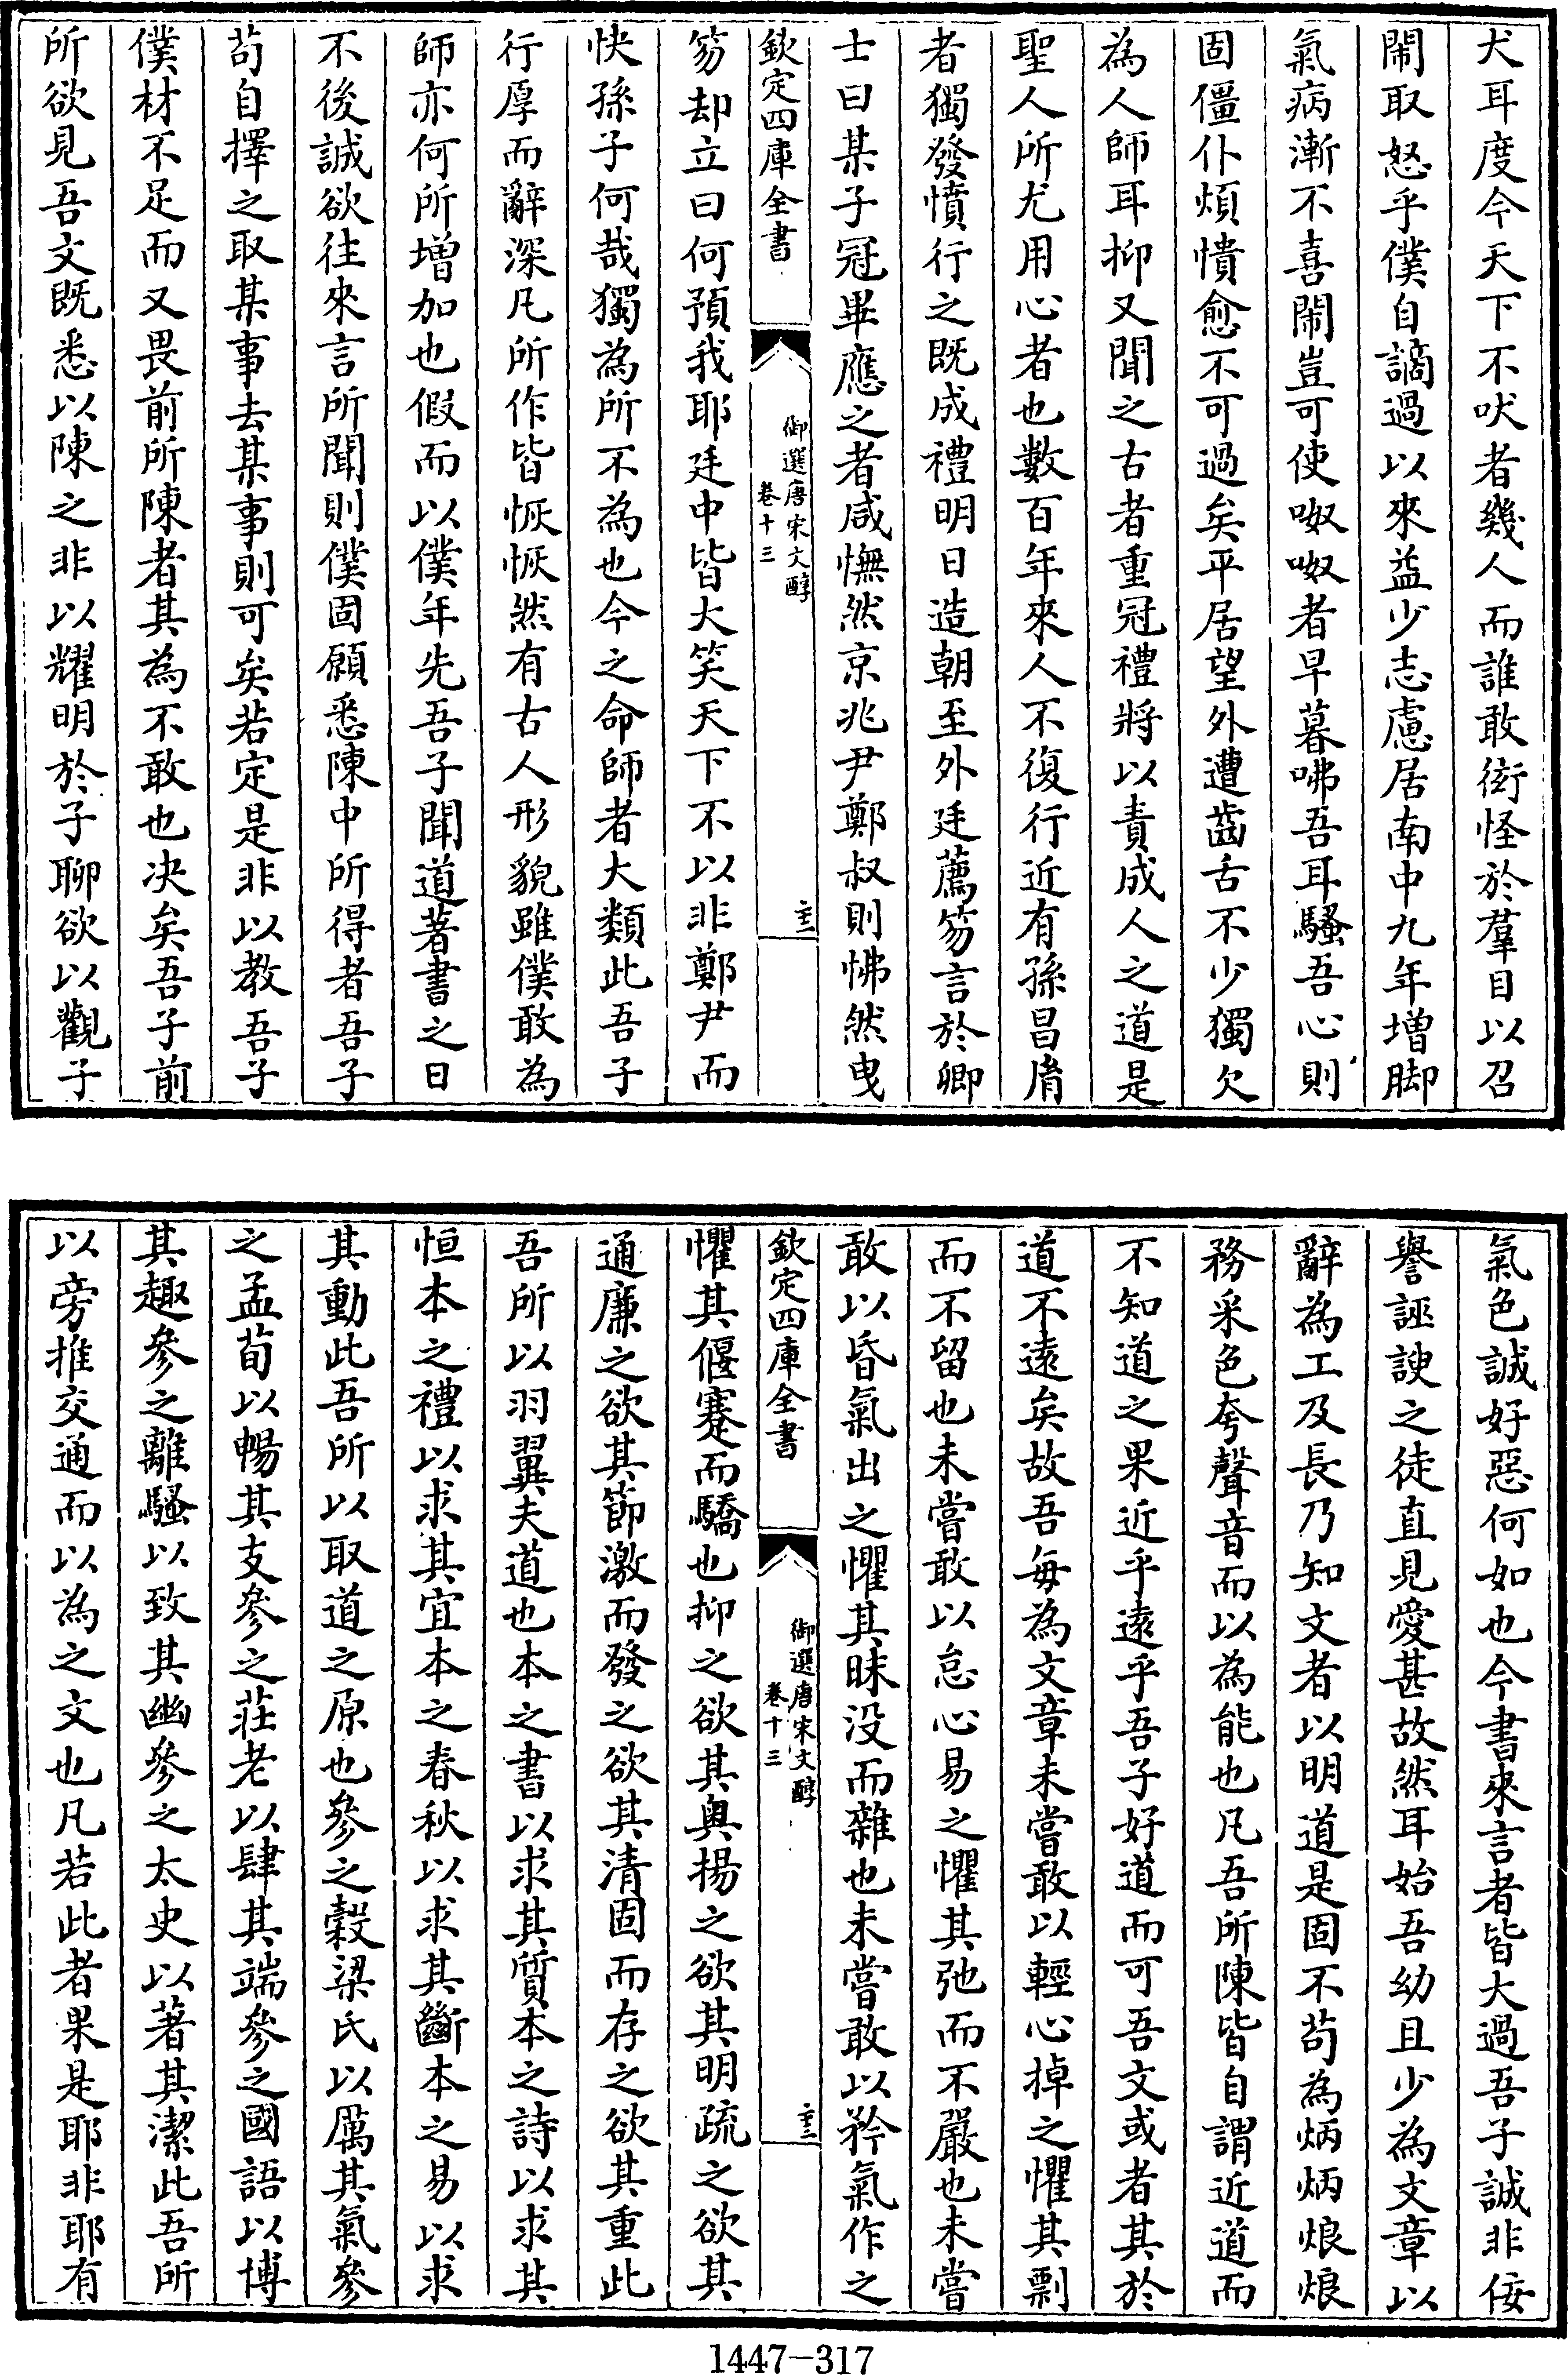 犬耳度今天下不吠者幾人而誰敢衒怪於羣目以召
鬧取怒乎僕自謫過以來益少志慮居南中九年增脚
氣病漸不喜鬧豈可使呶呶者早暮咈吾耳騷吾心則
固僵仆煩憒愈不可過矣平居望外遭齒舌不少獨欠
為人師耳抑又聞之古者重冠禮將以責成人之道是
聖人所尤用心者也數百年來人不復行近有孫昌𦙍
者獨發憤行之既成禮明日造朝至外廷薦笏言於卿
士曰某子冠畢應之者咸憮然京兆尹鄭叔則怫然曳
欽定四庫全書
御選唐宋文醇
卷十三
笏却立曰何預我耶廷中皆大笑天下不以非鄭尹而
快孫子何哉獨為所不為也今之命師者大類此吾子
行厚而辭深凡所作皆恢恢然有古人形貌雖僕敢為
師亦何所增加也假而以僕年先吾子聞道著書之日
不後誠欲往來言所聞則僕固願悉陳中所得者吾子
茍自擇之取某事去某事則可矣若定是非以教吾子
僕材不足而又畏前所陳者其為不敢也决矣吾子前
所欲見吾文既悉以陳之非以耀明於子聊欲以觀子
氣色誠好惡何如也今書來言者皆大過吾子誠非佞
譽誣諛之徒直見愛甚故然耳始吾幼且少為文章以
辭為工及長乃知文者以明道是固不茍為炳炳烺烺
務采色夸聲音而以為能也凡吾所陳皆自謂近道而
不知道之果近乎遠乎吾子好道而可吾文或者其於
道不遠矣故吾每為文章未嘗敢以輕心掉之懼其剽
而不留也未嘗敢以怠心易之懼其弛而不嚴也未嘗
敢以昏氣出之懼其昧没而雜也未嘗敢以矜氣作之
欽定四庫全書
御選唐宋文醇
卷十三
懼其偃蹇而驕也抑之欲其奥揚之欲其明疏之欲其
通廉之欲其節激而發之欲其清固而存之欲其重此
吾所以羽翼夫道也本之書以求其質本之詩以求其
恒本之禮以求其宜本之春秋以求其斷本之易以求
其動此吾所以取道之原也參之穀梁氏以厲其氣參
之孟荀以暢其支參之莊老以肆其端參之國語以博
其趣參之離騷以致其幽參之太史以著其潔此吾所
以旁推交通而以為之文也凡若此者果是耶非耶有
1447-317